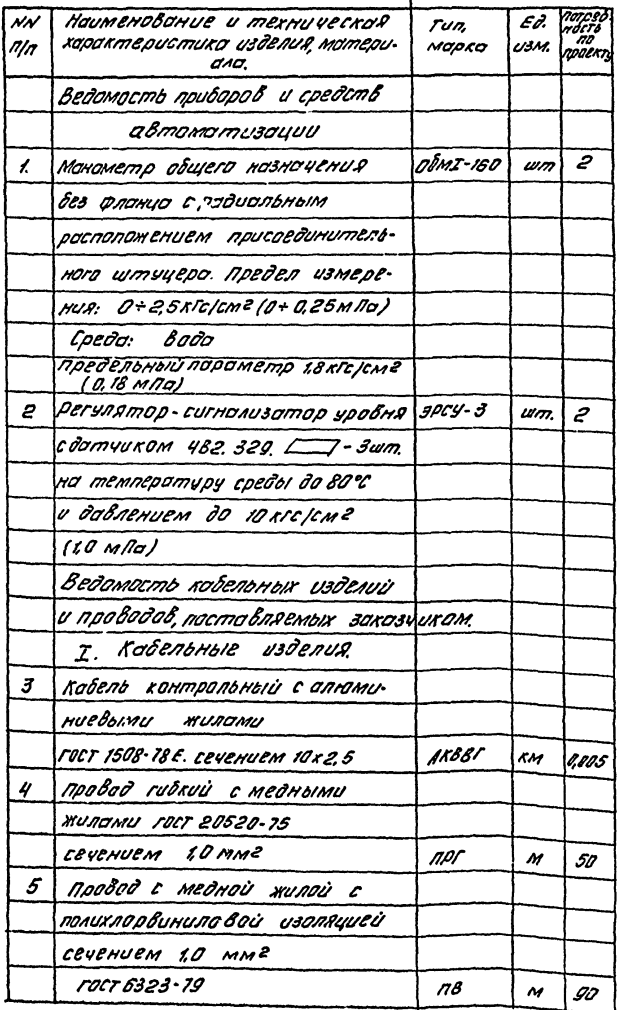 NN п/п Наименование и техническая характеристика изделия, материала. Тип, марка Ед. изм. Потребность по проекту
Ведомость приборов и средств
автоматизации
1. Манометр общего назначения ОбмI-160 шт 2
без фланца с радиальным
расположением присоединитель-
ного штуцера. Предел измере-
ния: 0÷2,5 кгс/см2 (0÷0,25 мПа)
Среда: вода
предельный параметр 1,8 кгс/см2
(0,18 мПа)
2 Регулятор-сигнализатор уровня ЭРСУ-3 шт. 2
с датчиком 4В2. 329. - 3шт.
на температуру среды до 80°С
и давлением до 10 кгс/см2
(1,0 мПа)
Ведомость кабельных изделий
и проводов, поставляемых заказчиком.
I. Кабельные изделия.
3 Кабель контрольный с алюми-
ниевыми жилами
гост 1508-78Е. сечением 10х2,5 АКВВГ км 0,005
4 провод гибкий с медными
жилами гост 20520-75
сечением 1,0 мм2 ПРГ м 50
5 Провод с медной жилой с
полихлорвиниловой изоляцией
сечением 1,0 мм2
гост 6323-79 ПВ м 90